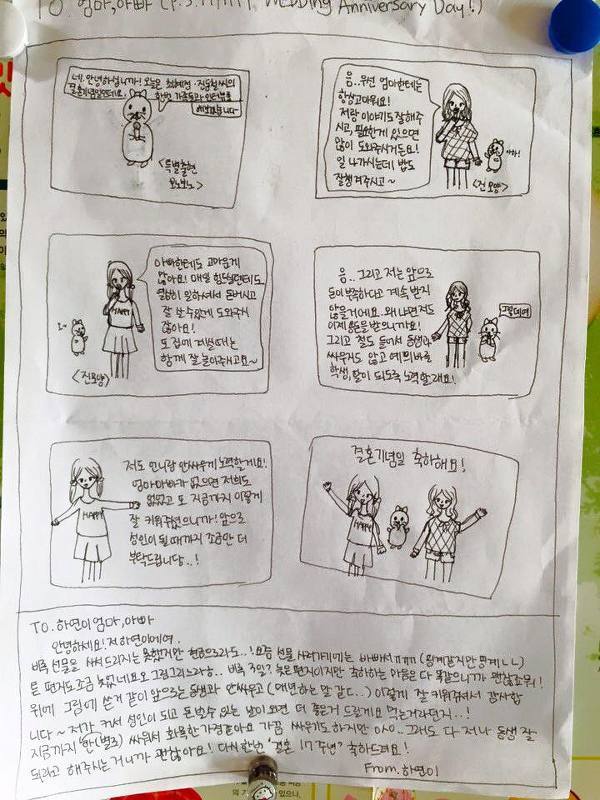 To 엄마, 아빠 (Wedding Anniversary Day!)
네! 안녕하십니까! 오늘은
결혼기념일인데요,
한번 가족들과 인터뷰를
해보겠습니다
<특별출현
보노보노>
음.. 우선 엄마한테는
항상 고마워요!
저랑 이야기도 잘해주
시고, 필요한게 있으면
많이 도와주시거든요!
일 나가시는데 밥도
잘 챙겨주시고~
아빠한테도 고마운게
많아요! 매일 힘드실텐데도
열심히 일하셔서 돈버시고
잘 쓰게 도와주시
잖아요!
또 집에 계실때는
함께 잘 놀아주시고요~
HAPPY
음.. 그리고 저는 앞으로
돈이 부족하다고 계속 받지
않을거에요. 왜냐면 저도
이제 용돈을 받으니까요!
그리고 철도 들어서 동생과
싸우지도 않고 예의바른
학생, 딸이 되도록 노력할래요!
그렇대여
저도 언니랑 안싸우게 노력할거에요!
엄마아빠가 없으면 저희도
없었고 또 지금까지 이렇게
잘 키워주셨으니까! 앞으로
성인이 될 때까지 조금만 더
부탁드립니당..!
HAPPY
결혼기념일 축하해요!
HAPPY
To. 하연이 엄마, 아빠
안녕하세요! 저 하연이에여.
비록 선물을 사서 드리지는 못했지만 요즘 선물 사러가기에는 바빠서ㅠㅠㅠ (핑계같지만 핑계ㄴㄴ)
편지도 조금 늦었네요 비록 늦은 편지이지만 축하하는 마음은 다 똑같으니까 괜찮아유!
위에 그림에 쓴거 같이 앞으로는 동생과 안싸우고 (매년하는 말 같다..) 이렇게 잘 키워주셔서 감사합
니다~ 저가 커서 성인이 되고 돈 벌수 있는 날이 오면 더 좋은거 드릴게요 먹는거라던지..!
지금까지 한(별로) 싸워서 화목한 가정같아요 가끔 싸우기도 하지만 그래도 다 저나 동생 잘
되라고 해주시는 거니까 괜찮아요! 다시한번 "결혼 17주년" 축하드려요!
From. 하연이